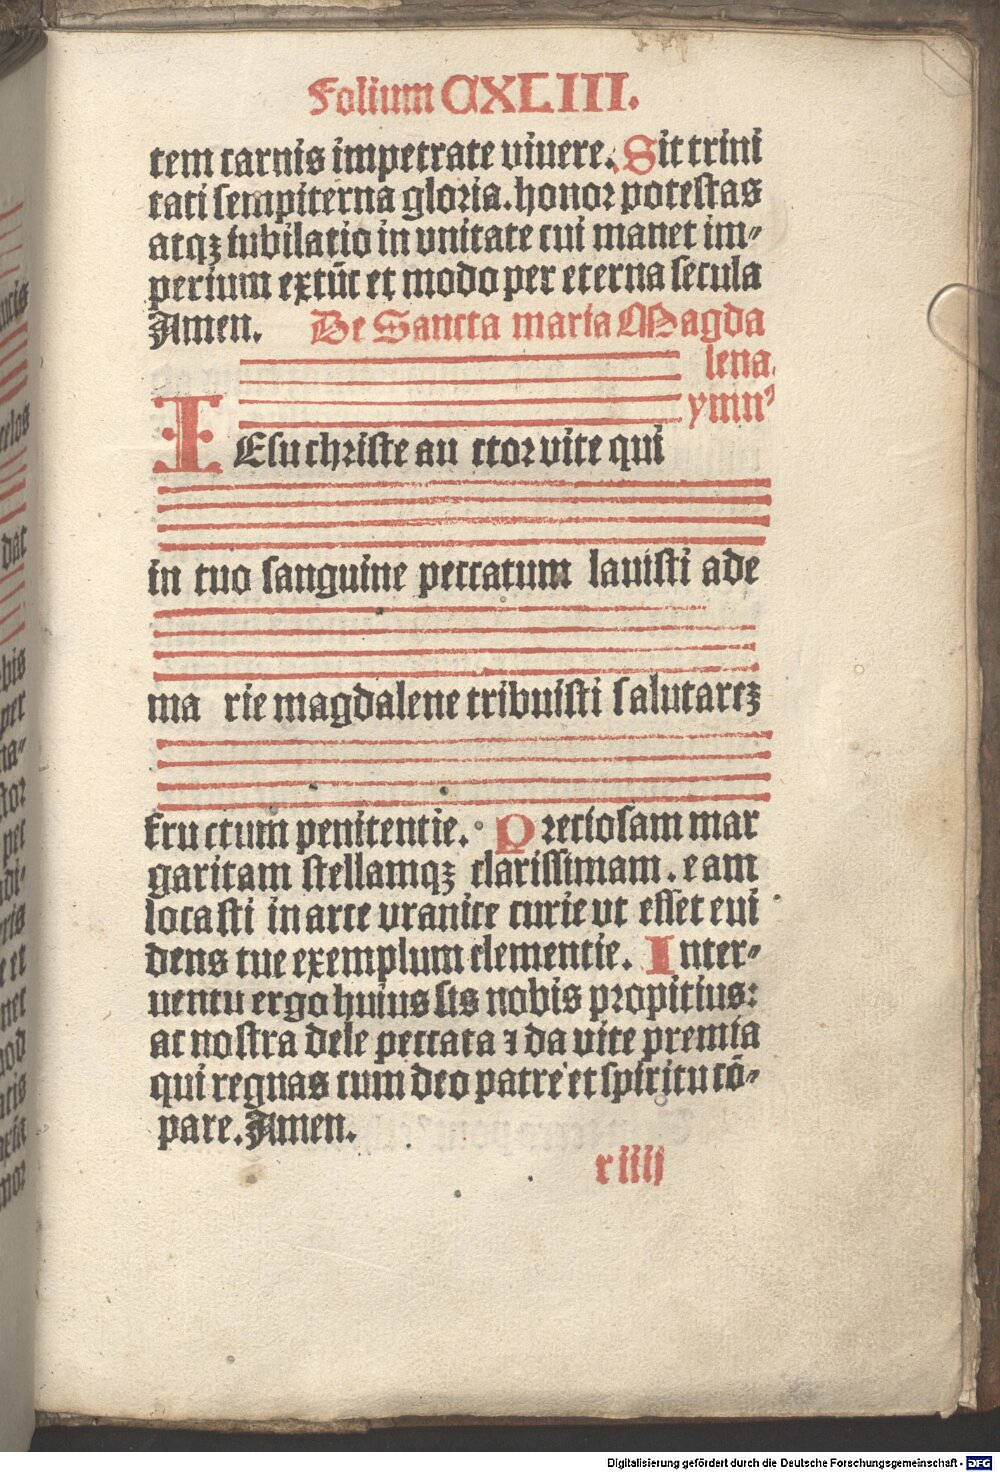 Folium CXLIII.
tem carnis impetrate viuere. Sit trini
tati sempiterna gloria. honor potestas
atqꝫ iubilatio in vnitate cui manet im⸗
perium extūc et modo per eterna secula
Amen. De Sancta maria Magda
lena.
ymnꝰ
IEsu christe au ctor vite qui
in tuo sanguine peccatum lauisti ade
ma rie magdalene tribuisti salutareꝫ
fru ctum penitentie. Preciosam mar
garitam stellamqꝫ clarissimam. eam
locasti in arce vranice curie vt esset eui
dens tue exemplum clementie. Inter⸗
uentu ergo huius sis nobis propitius:
ac nostra dele peccata ⁊ da vite premia
qui regnas cum deo patre et spiritu cō⸗
pare. Amen.
r iiij
Digitalisierung gefördert durch die Deutsche Forschungsgemeinschaft - DFG